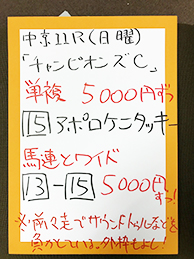 中京11R(日曜)
「チャンピオンズC」
単複 5000円ずつ
15 アポロケンタッキー
馬連とワイド
13-15 5000円
ずつ!
※前々走でサウンドトゥルーなどを
負かしている。外枠もよし!